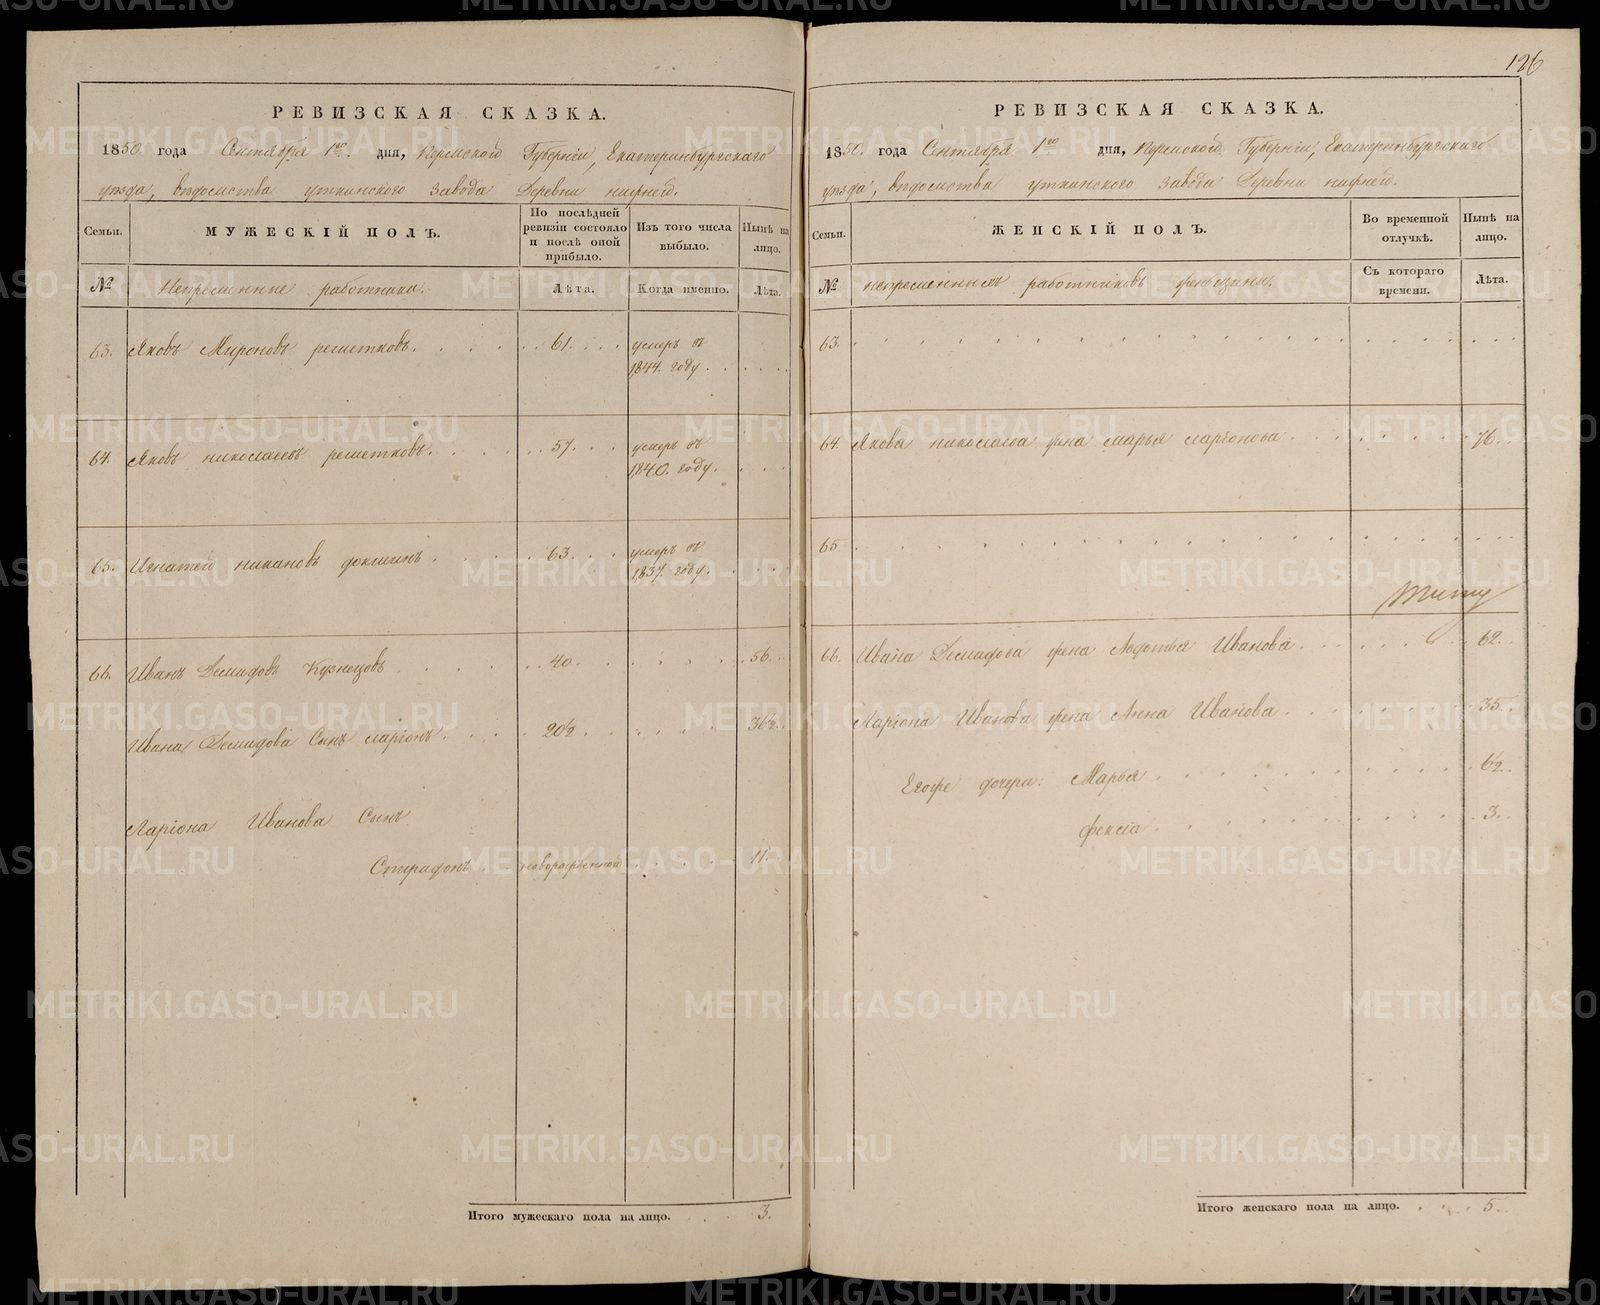 126
РЕВИЗСКАЯ СКАЗКА.
1850. года Сентября 1го. дня, Пермской Губерніи, Екатеринбургскаго
уѣзда, вѣдомства уткинского завода Деревни нижней.
Семьи.
МУЖЕСКІЙ ПОЛЪ.
По послѣдней ревизіи состояло и послѣ оной прибыло.
Изъ того числа выбыло.
Нынѣ на лицо.
№
Непременные работники.
Лѣта.
Когда именно.
Лѣта.
63. Яковъ Мироновъ решетковъ. 61. умеръ въ
1844. году.
64. Яковъ николаевъ решетковъ. 57. умеръ въ
1840. году.
65. Игнатей никановъ 63. умеръ въ
1837. году.
66. Иванъ Демидовъ Кузнецовъ 40. 56.
Ивана Демидова Сынъ ларіонъ. 20½ 36½.
Ларіона Иванова Сынъ
новорожденной 11.
Итого мужескаго пола на лицо. 3.
РЕВИЗСКАЯ СКАЗКА.
1850. года Сентября 1го дня, Пермской Губерніи, Екатеринбургскаго
уѣзда, вѣдомства уткинского завода Деревни нижней.
Семьи.
ЖЕНСКІЙ ПОЛЪ.
Во временной отлучкѣ.
Нынѣ на лицо.
№
непременныхъ работниковъ
Съ котораго времени.
Лѣта.
63.
64. Якова николаева жена марья ларіонова 76.
65
66. Ивана Демидова жена Авдотья Иванова 62.
Ларіона Иванова жена Анна Иванова 35.
Егоже дочери: Марья 6½.
фекла 3.
Итого женскаго пола на лицо. 5.
METRIKI.GASO-URAL.RU